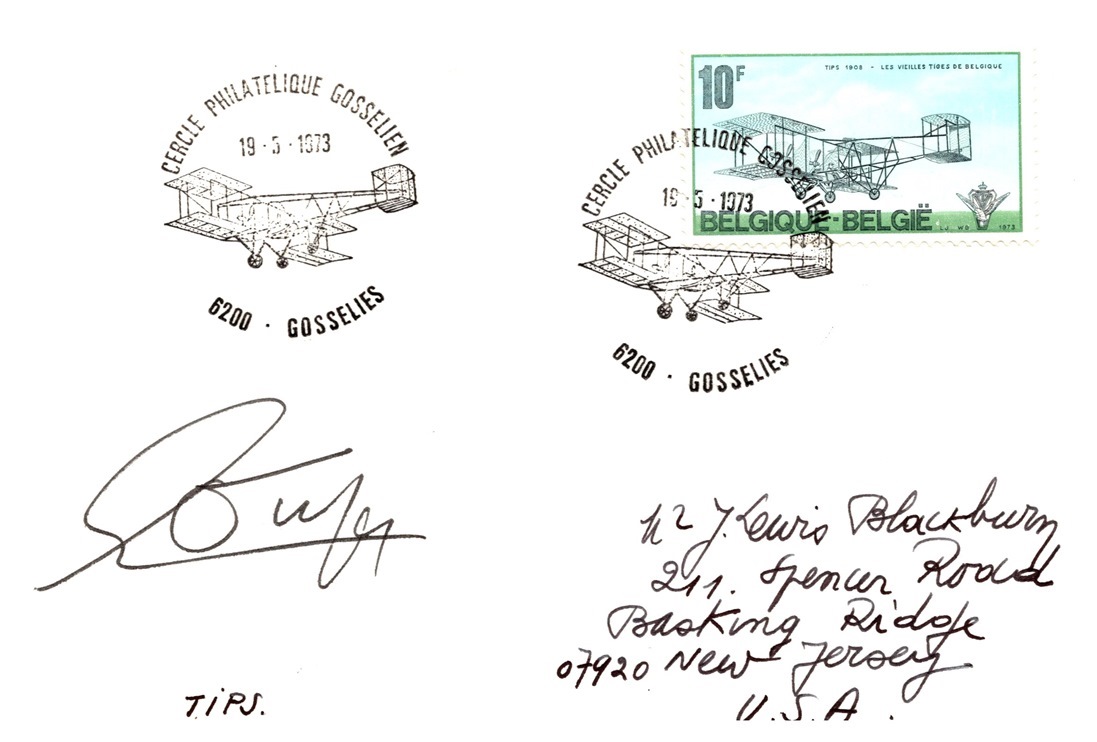 CERCLE PHILATELIQUE GOSSELIEN
19 · 5 · 1973
6200 · GOSSELIES
10F
TIPS 1908 - LES VIEILLES TIGES DE BELGIQUE
BELGIQUE-BELGIË
1973
CERCLE PHILATELIQUE GOSSELIEN
19 · 5 · 1973
6200 · GOSSELIES
J. Lewis Blackburn
211. Spencer Road
Basking Ridge
07920 New Jersey
U.S.A.
T.iPS.